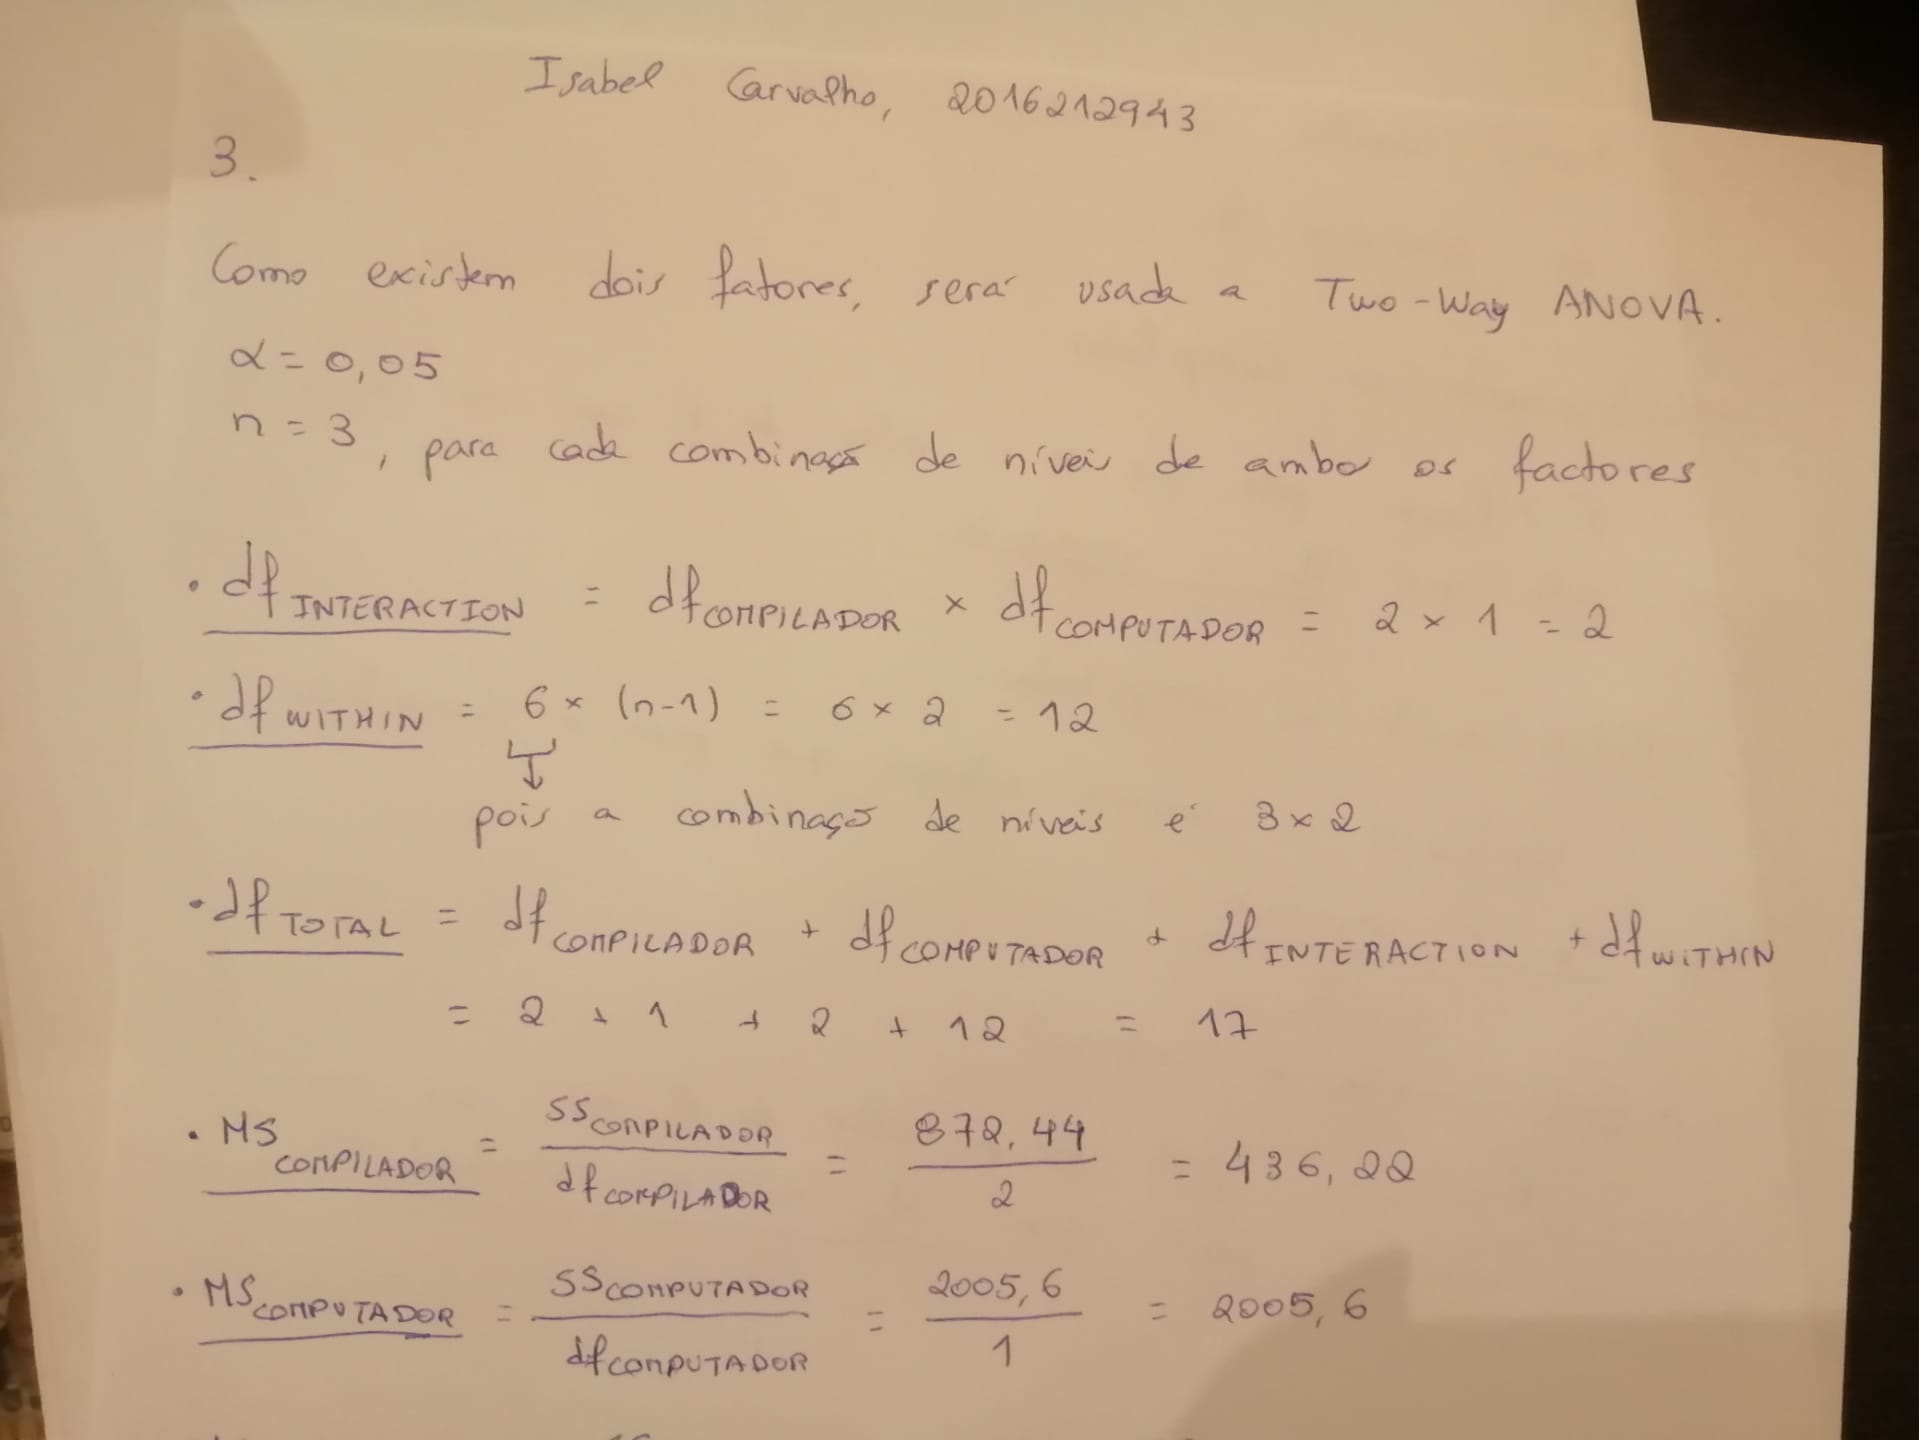 Isabel Carvalho, 2016212943
3.
Como existem dois fatores, será usada a Two-Way ANOVA.
α = 0,05
n = 3, para cada combinação de níveis de ambos os factores
• df INTERACTION = df COMPILADOR × df COMPUTADOR = 2 × 1 = 2
• df WITHIN = 6 × (n-1) = 6 × 2 = 12
pois a combinação de níveis é 3 × 2
• df TOTAL = df COMPILADOR + df COMPUTADOR + df INTERACTION + df WITHIN
= 2 + 1 + 2 + 12 = 17
• MS COMPILADOR = SS COMPILADOR / df COMPILADOR = 872,44 / 2 = 436,22
• MS COMPUTADOR = SS COMPUTADOR / df COMPUTADOR = 2005,6 / 1 = 2005,6